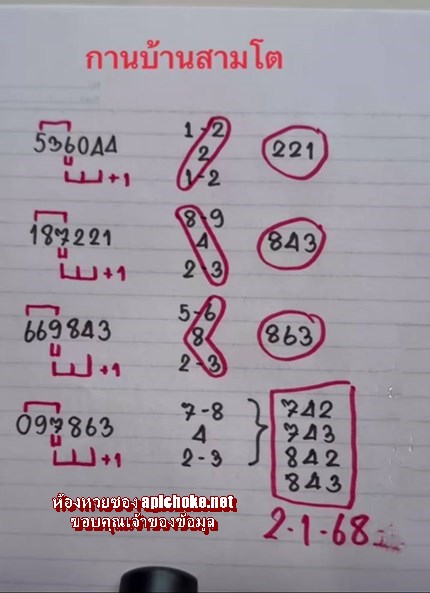 กานบ้านสามโต
536044 1-2 221
2
+1 1-2
187221 8-9 843
4
+1 2-3
669843 5-6 863
8
+1 2-3
097863 7-8 742
4 743
+1 2-3 842
843
ห้องหวยซอง apichoke.net
ขอบคุณเจ้าของข้อมูล
2-1-68